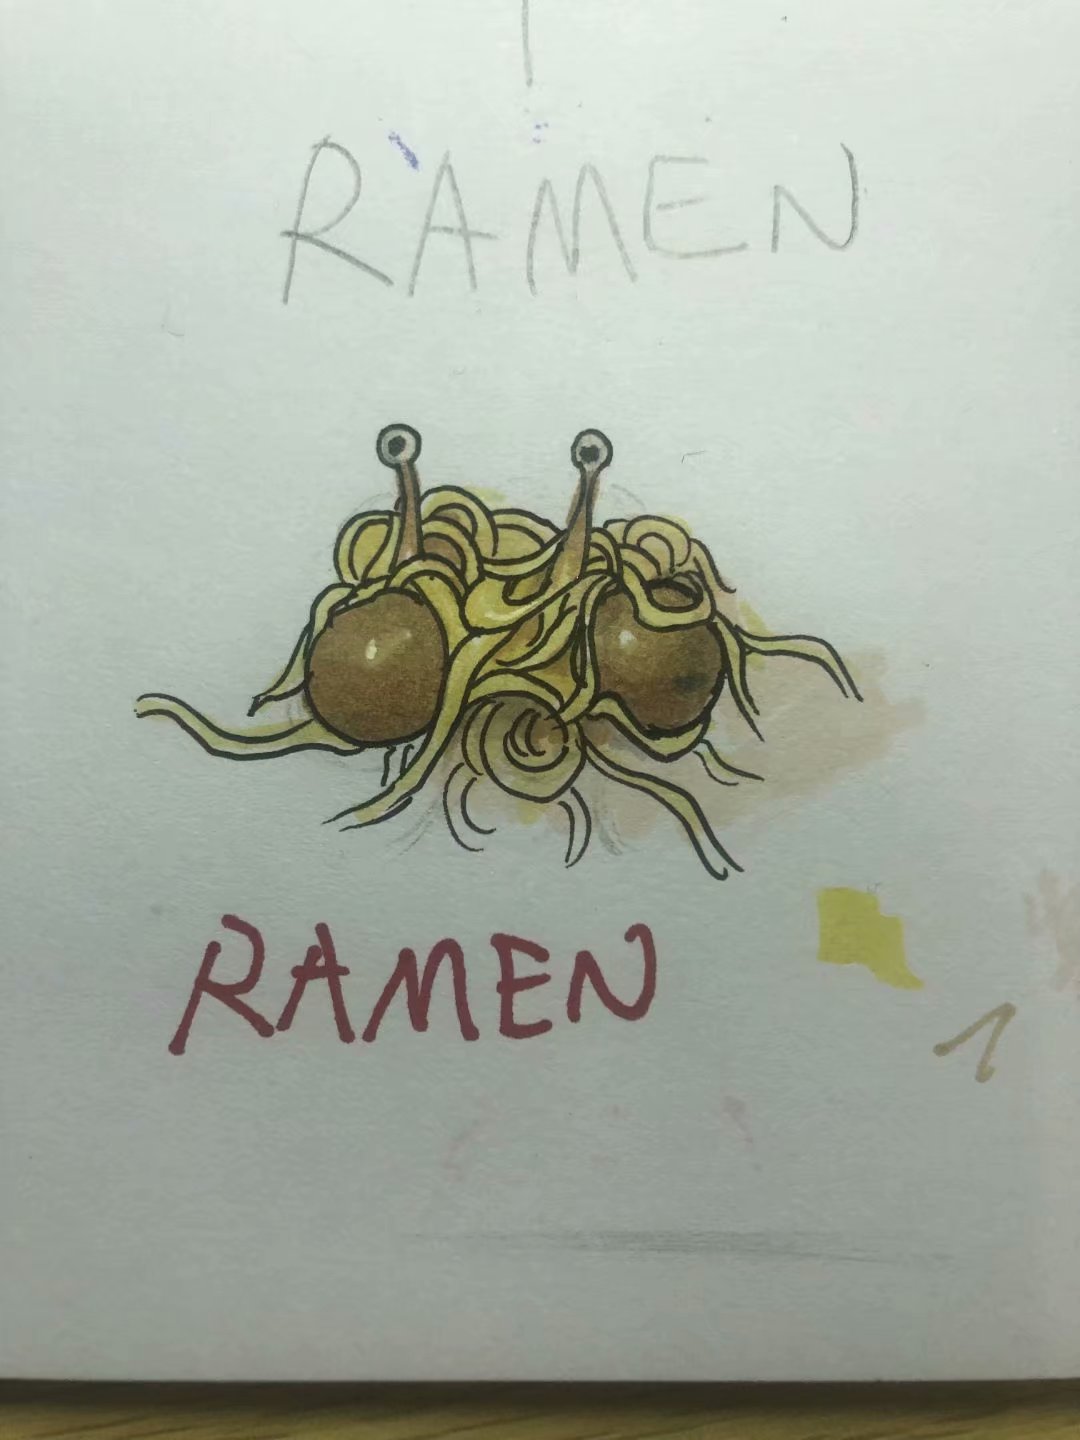 RAMEN
RAMEN